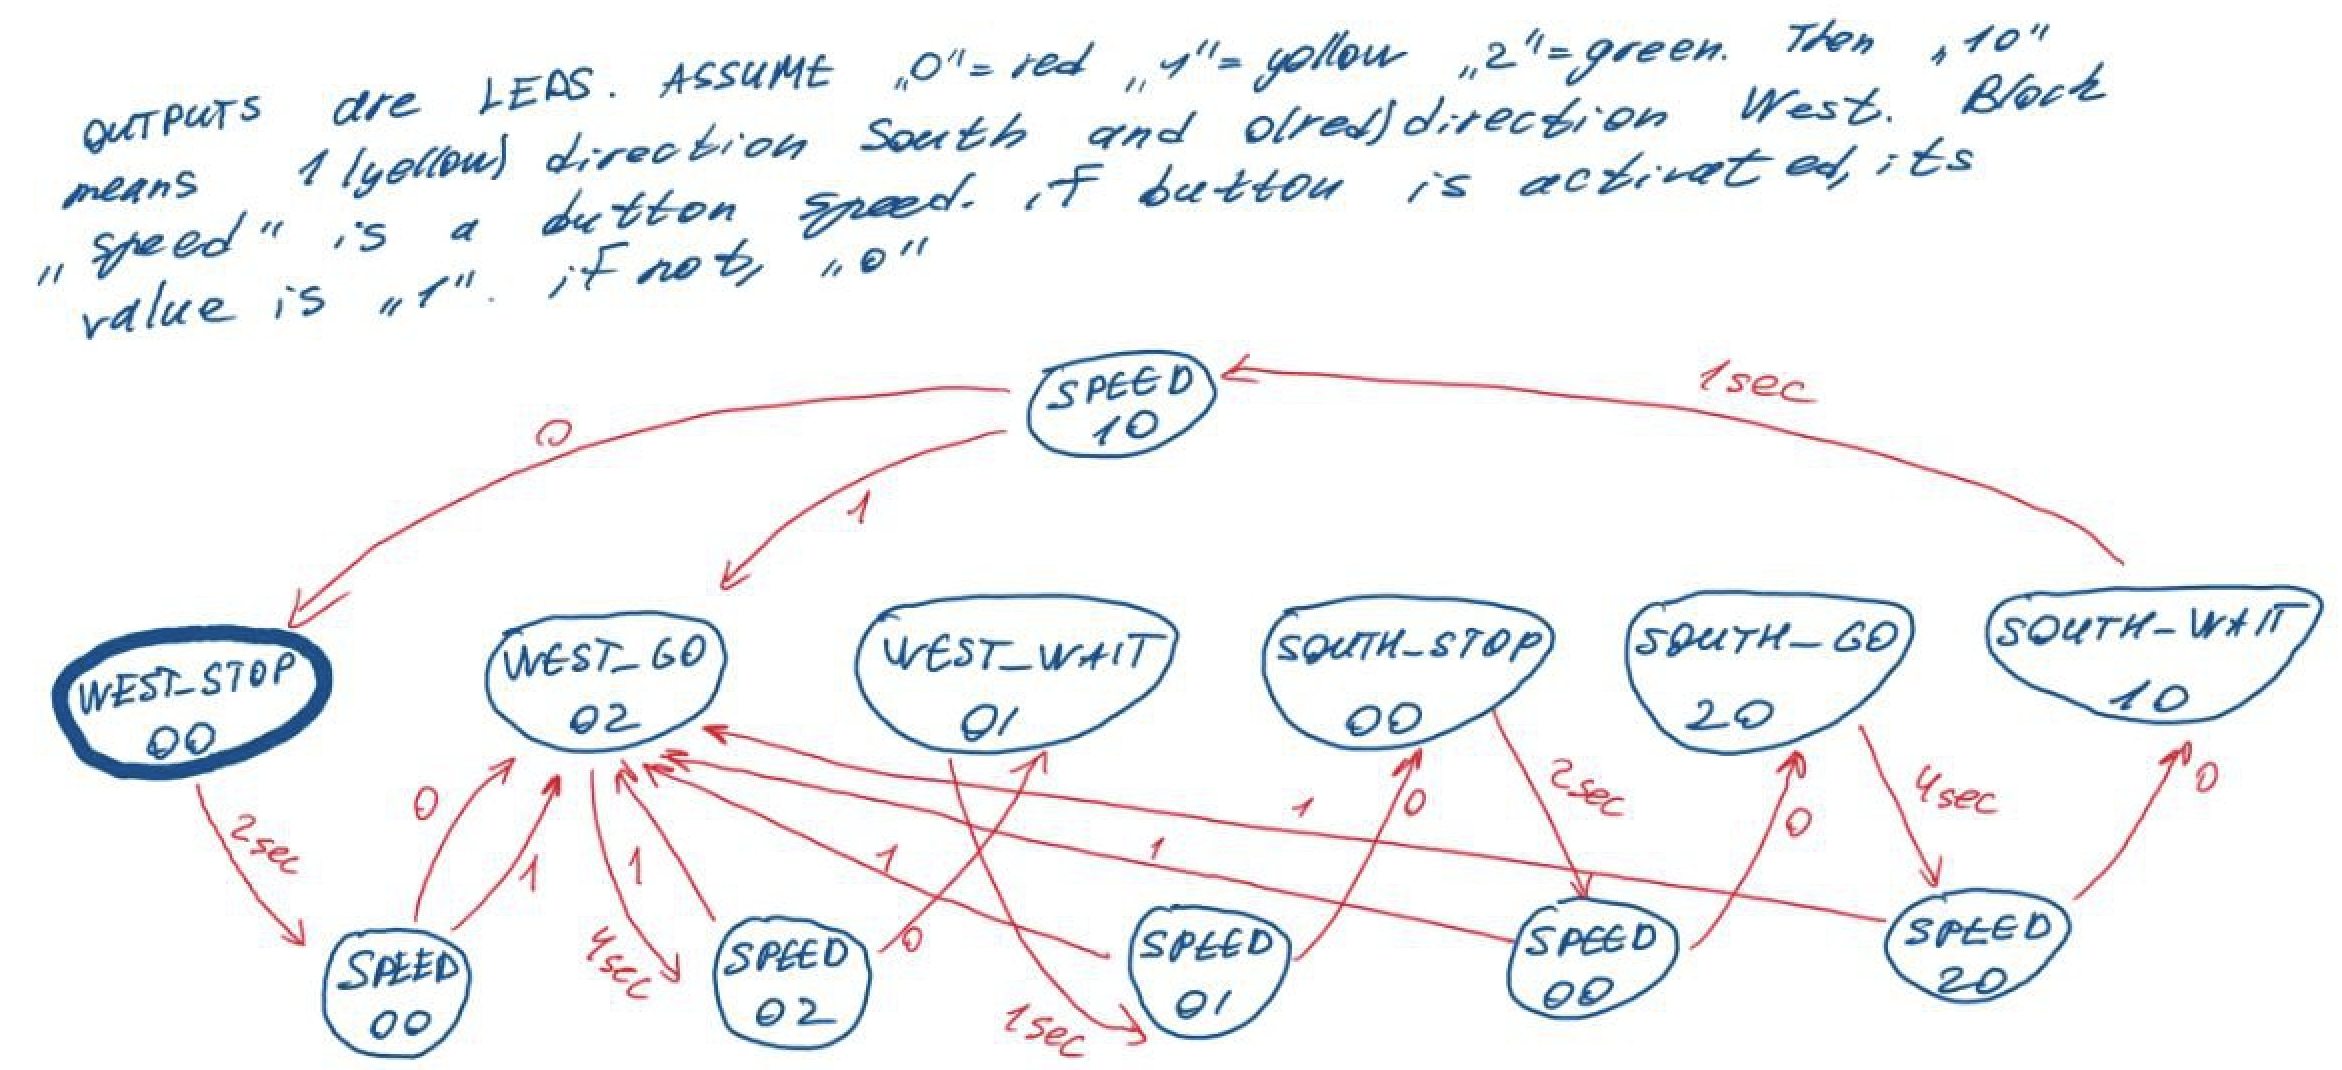 OUTPUTS are LEDS. ASSUME „0"= red „1"= yellow „2"=green. Then „10"
means 1 (yellow) direction South and 0(red) direction West. Block
„speed" is a button speed. if button is activated, its
value is „1". if not, „0"
SPEED
10
1sec
0
1
WEST_STOP
00
WEST_GO
02
WEST_WAIT
01
SOUTH_STOP
00
SOUTH_GO
20
SOUTH_WAIT
10
2sec
0
1
4sec
1
0
1
1sec
1
1
0
2sec
0
4sec
0
SPEED
00
SPEED
02
SPEED
01
SPEED
00
SPEED
20